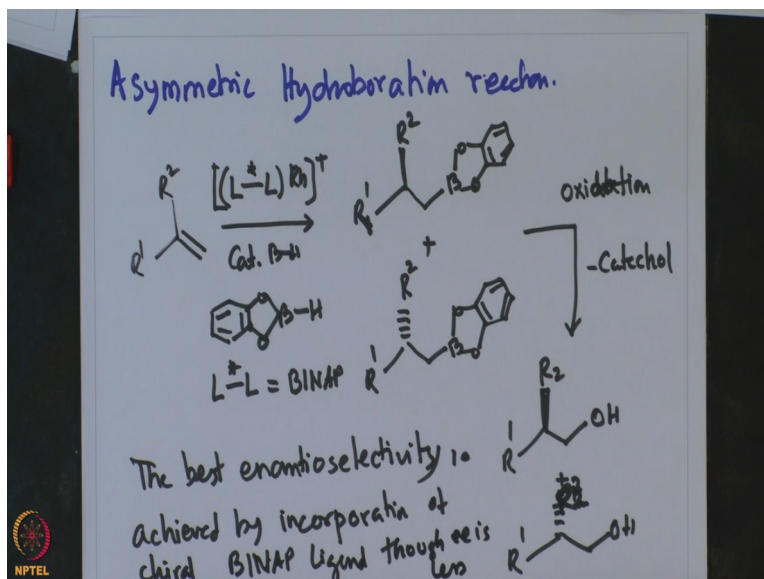 Asymmetric Hydroboration reaction.
R²
R¹
[(L-*L)Rh]⁺
Cat. B-H
B-H
O
O
L-*L = BINAP
R²
R¹
B
O
O
+
R²
R¹
B
O
O
oxidation
-Catechol
R2
R¹
OH
+
R¹
OH
The best enantioselectivity is
achieved by incorporation of
chiral BINAP ligand though ee is
less
NPTEL